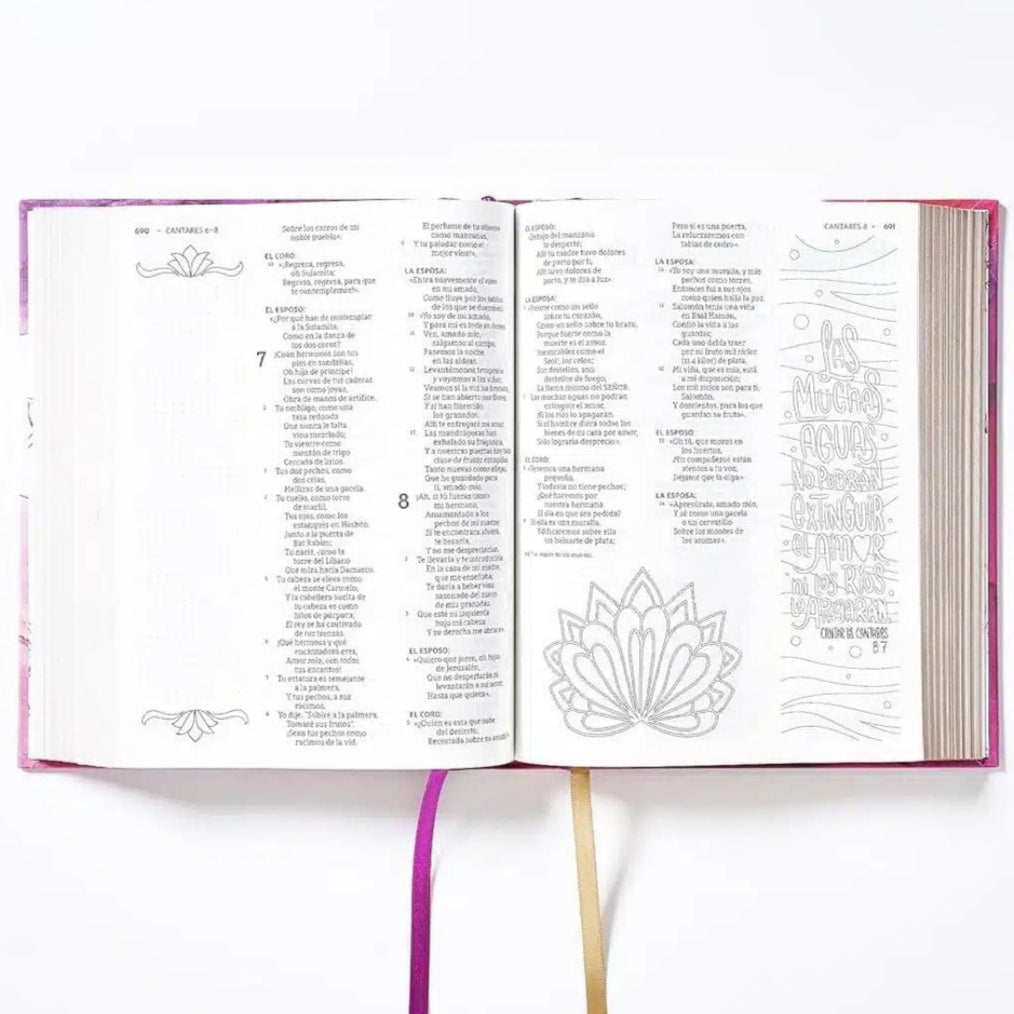 690 - CANTARES 6-8
Sobre los carros de mi
noble pueblo».
EL CORO:
13 «¡Regresa, regresa,
oh Sulamita;
Regresa, regresa, para que
te contemplemos!».
EL ESPOSO:
«¿Por qué han de contemplar
a la Sulamita,
Como en la danza de
los dos coros?
7 ¡Cuán hermosos son tus
pies en sandalias,
Oh hija de príncipe!
Las curvas de tus caderas
son como joyas,
Obra de manos de artífice.
2 Tu ombligo, como una
taza redonda
Que nunca le falta
vino mezclado;
Tu vientre como
montón de trigo
Cercado de lirios.
3 Tus dos pechos, como
dos crías,
Mellizas de una gacela.
4 Tu cuello, como torre
de marfil,
Tus ojos, como los
estanques en Hesbón
Junto a la puerta de
Bat Rabim;
Tu nariz, como la
torre del Líbano
Que mira hacia Damasco.
5 Tu cabeza se eleva como
el monte Carmelo,
Y la cabellera suelta de
tu cabeza es como
hilos de púrpura;
El rey se ha cautivado
de tus trenzas.
6 ¡Qué hermosa y qué
encantadora eres,
Amor mío, con todos
tus encantos!
7 Tu estatura es semejante
a la palmera,
Y tus pechos, a sus
racimos.
8 Yo dije: "Subiré a la palmera,
Tomaré sus frutos".
¡Sean tus pechos como
racimos de la vid,
El perfume de tu aliento
como manzanas,
9 Y tu paladar como el
mejor vino!».
LA ESPOSA:
«Entra suavemente el vino
en mi amado,
Como fluye por los labios
de los que se duermen.
10 »Yo soy de mi amado,
Y para mí es todo su deseo.
11 Ven, amado mío,
salgamos al campo,
Pasemos la noche
en las aldeas.
12 Levantémonos temprano
y vayamos a las viñas;
Veamos si la vid ha brotado,
Si se han abierto sus flores,
Y si han florecido
los granados.
Allí te entregaré mi amor.
13 Las mandrágoras han
exhalado su fragancia,
Y a nuestras puertas hay toda
clase de frutas escogidas,
Tanto nuevas como añejas,
Que he guardado para
ti, amado mío.
8 ¡Ah, si tú fueras como
mi hermano,
Amamantado a los
pechos de mi madre!
Si te encontrara afuera,
te besaría,
Y no me despreciarían.
2 Te llevaría y te introduciría
En la casa de mi madre,
que me enseñaba;
Te daría a beber vino
sazonado del zumo
de mis granadas.
3 Que esté su izquierda
bajo mi cabeza
Y su derecha me abrace».
EL ESPOSO:
4 «Quiero que juren, oh hijas
de Jerusalén,
Que no despertarán ni
levantarán a mi amor,
Hasta que quiera».
EL CORO:
5 «¿Quién es esta que sube
del desierto,
Recostada sobre su amado?».
CANTARES 8 - 691
EL ESPOSO:
«Debajo del manzano
te desperté;
Allí tu madre tuvo dolores
de parto por ti,
Allí tuvo dolores de
parto, y te dio a luz».
LA ESPOSA:
«Ponme como un sello
sobre tu corazón,
Como un sello sobre tu brazo,
Porque fuerte como la
muerte es el amor,
Inexorables como el
Seol, los celos;
Sus destellos, son
destellos de fuego,
La llama misma del SEÑOR.
Las muchas aguas no podrán
extinguir el amor,
Ni los ríos lo apagarán.
Si el hombre diera todos los
bienes de su casa por amor,
Solo lograría desprecio».
EL CORO:
«Tenemos una hermana
pequeña,
Y todavía no tiene pechos;
¿Qué haremos por
nuestra hermana
El día en que sea pedida?
9 Si ella es una muralla,
Edificaremos sobre ella
un baluarte de plata;
Pero si es una puerta,
La reforzaremos con
tablas de cedro».
LA ESPOSA:
10 «Yo soy una muralla, y mis
pechos como torres,
Entonces fui a sus ojos
como quien halla la paz.
11 Salomón tenía una viña
en Baal Hamón,
Confió la viña a los
guardas;
Cada uno debía traer
por su fruto mil siclos
(11.4 kilos) de plata.
12 Mi viña, que es mía, está
a mi disposición;
Los mil siclos son para ti,
Salomón,
Y doscientos, para los que
guardan su fruto».
EL ESPOSO:
13 «Oh tú, que moras en
los huertos,
Mis compañeros están
atentos a tu voz;
Déjame que la oiga».
LA ESPOSA:
14 «Apresúrate, amado mío,
Y sé como una gacela
o un cervatillo
Sobre los montes de
los aromas».
LAS
MUCHAS
AGUAS
NO PODRÁN
EXTINGUIR
EL AMOR
NI LOS RÍOS
LO APAGARÁN.
CANTAR DE CANTARES
8:7